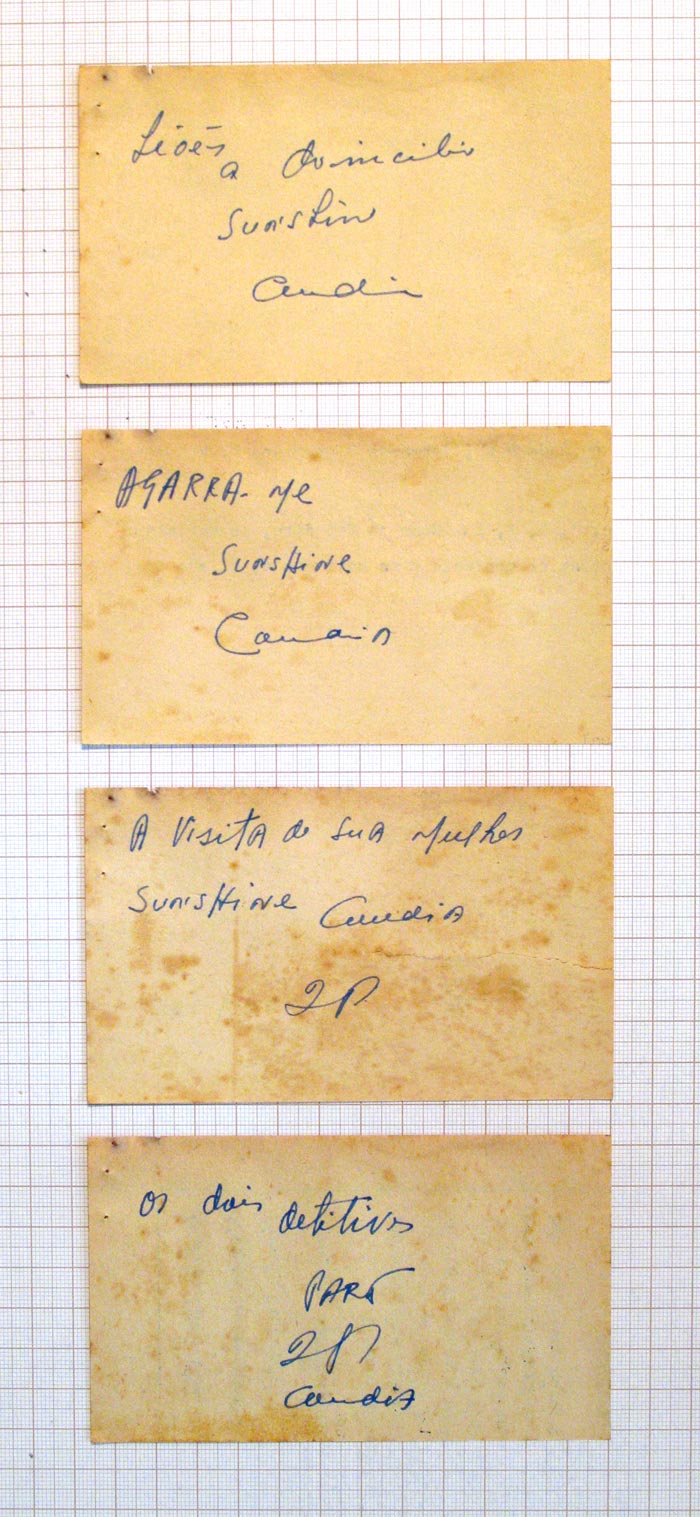 Lioēs a domicilio
Sunshin
Candia
AGARRA-Me
SunsHine
Candia
A VisitA de SuA Mulher
SunsHine Candia
2P
os dois detitives
PARA
2P
CandiA